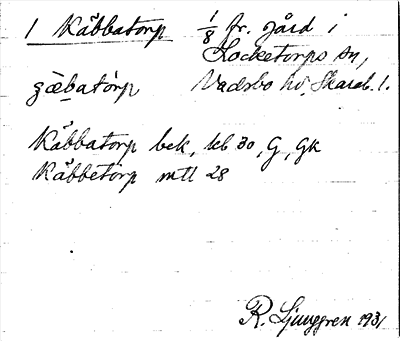 1 Kåbbatorp 1/8 fr. gård i
Locketorps sn,
gàbatórp Vadsbo hd, Skarab. l.
Kåbbatorp bek, kb 30, G, GK
Kåbbetorp mtl 28
R. Ljunggren 1931